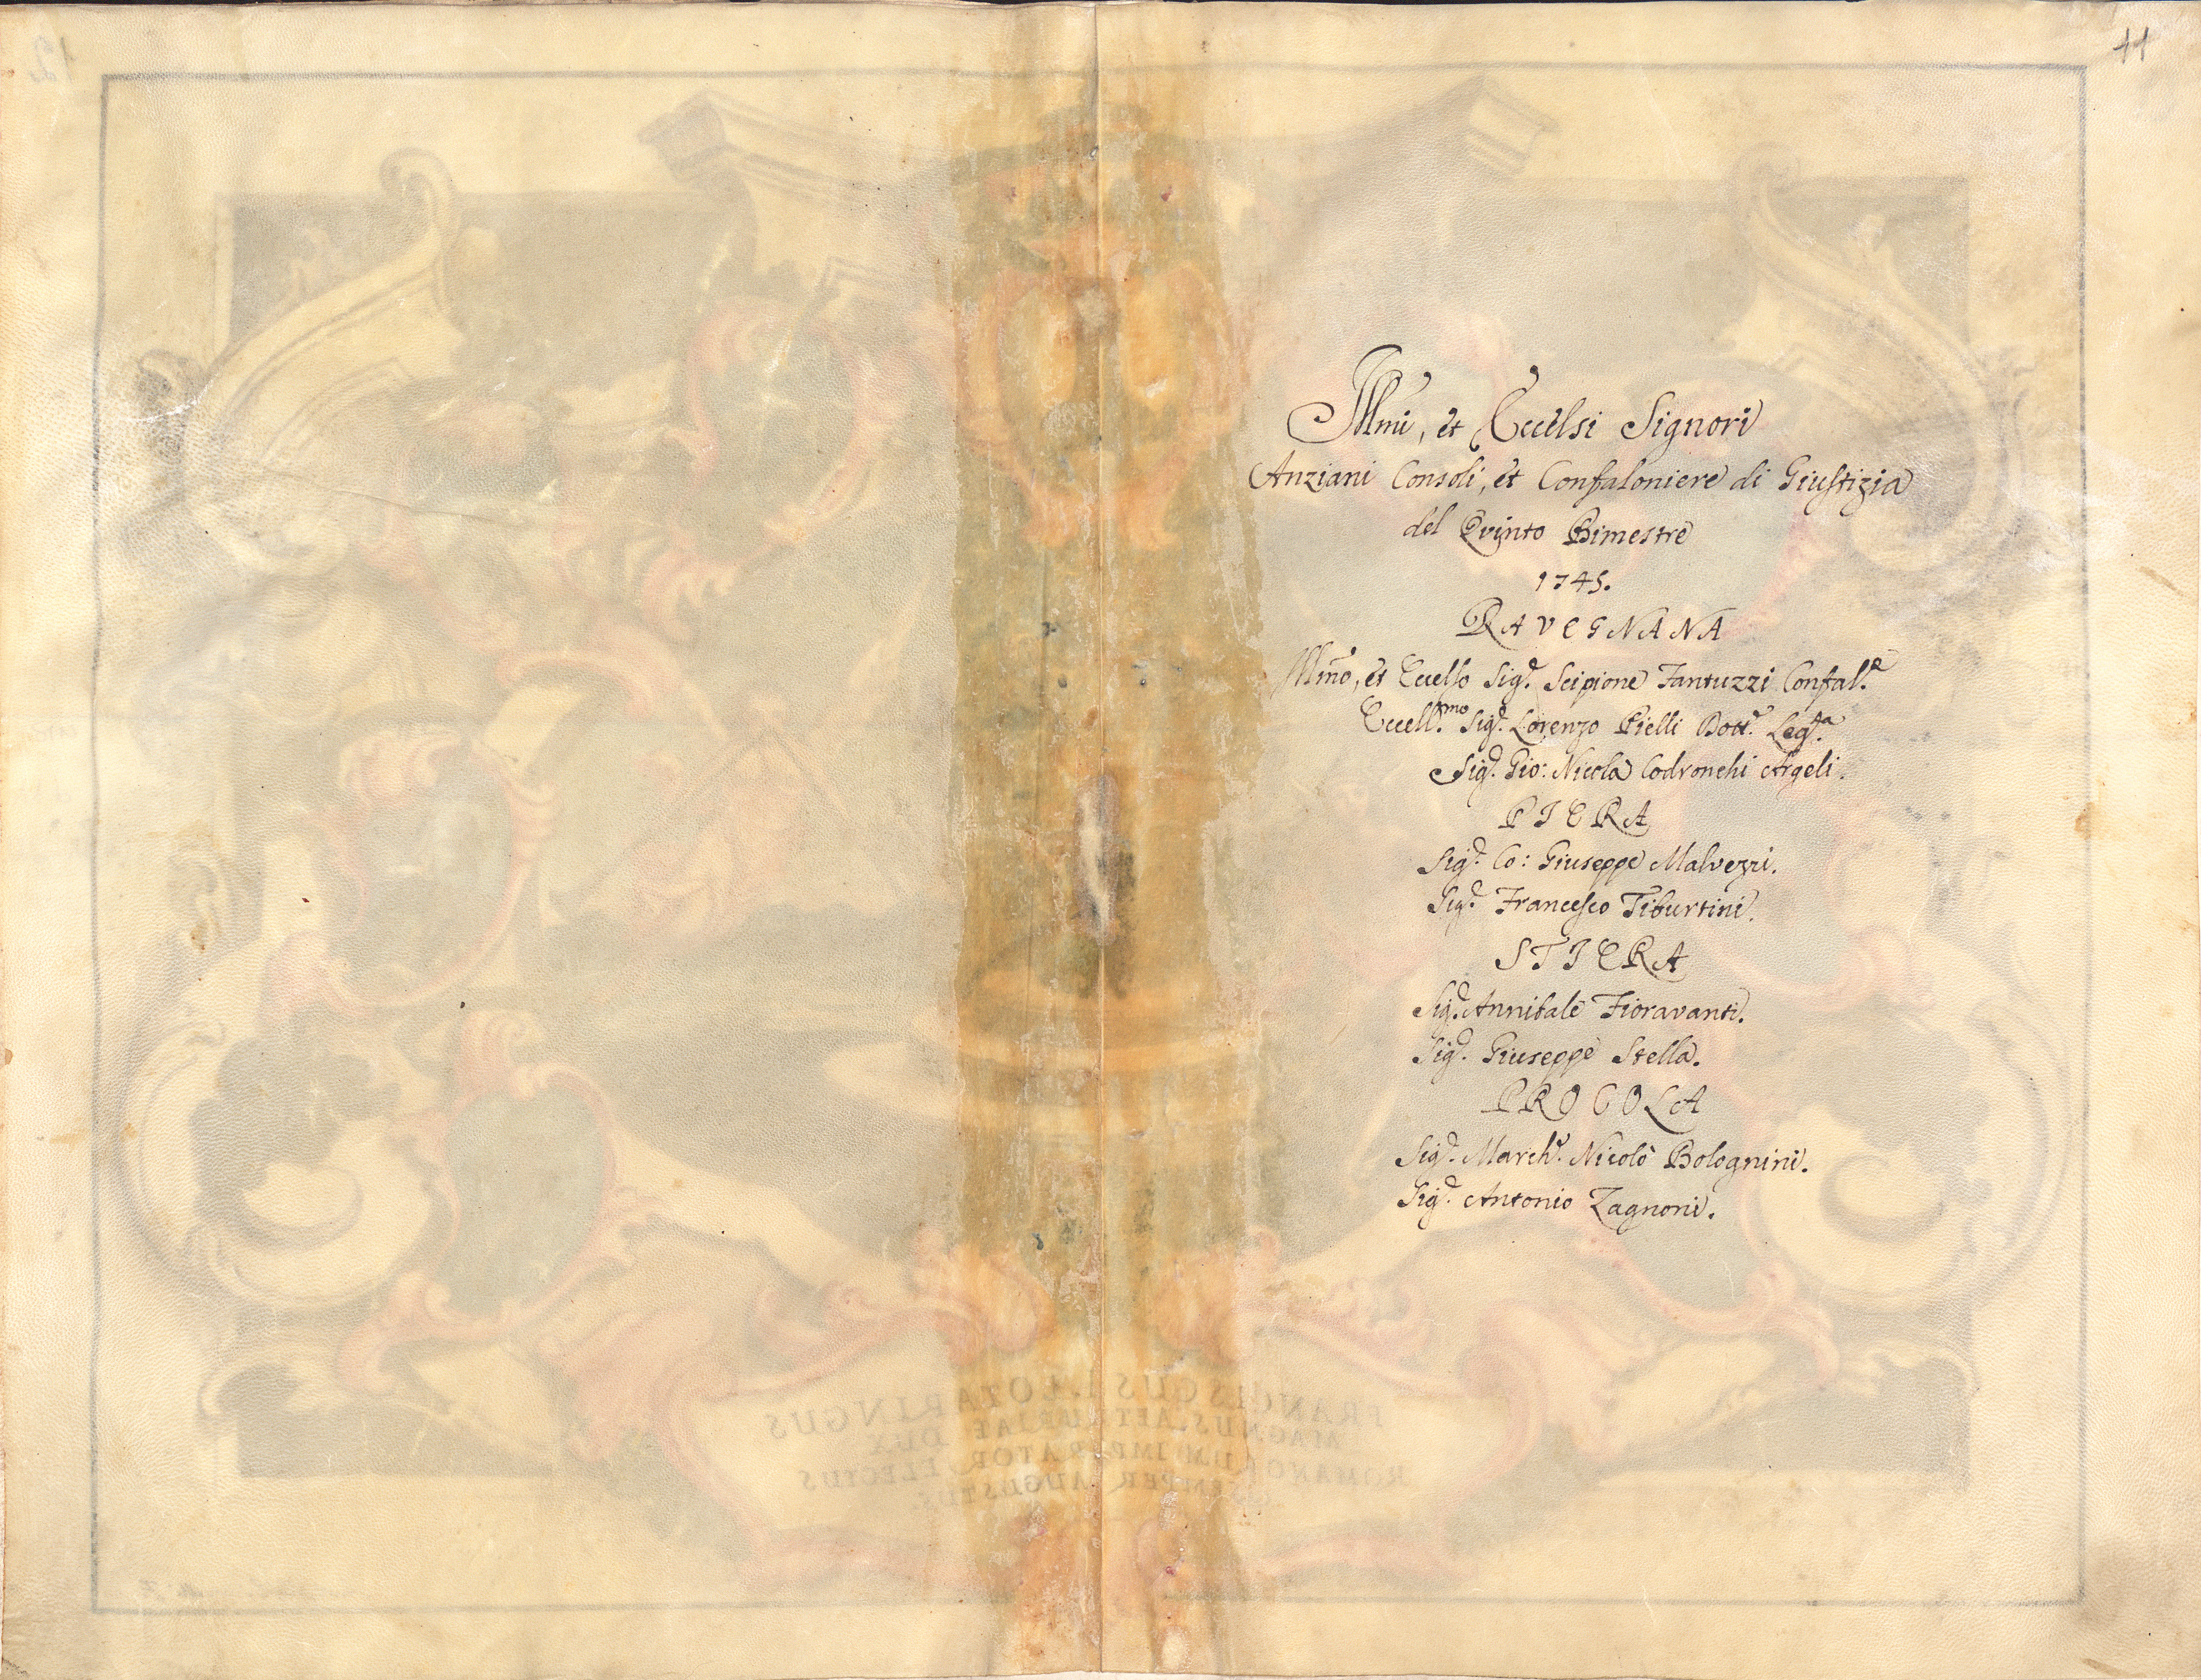 11
Illmi, et Eccelsi Signori
Anziani Consoli, et Confaloniere di Giustizia
del Qvinto Bimestre
1745.
RAVEGNANA
Illm̃o, et Eccelso Sig.r Scipione Fantuzzi Confal.e
Eccell.mo Sig.r Lorenzo Pielli Dott.r Leg.ta
Sig.r Gio: Nicola Codronchi Argeli.
PIERA
Sig.r Co: Giuseppe Malvezzi.
Sig.r Francesco Tiburtini.
STIERA
Sig.r Annibale Fioravanti.
Sig.r Giuseppe Stella.
PROCOLA
Sig.r March.e Nicolò Bolognini.
Sig.r Antonio Zagnoni.
FRANCISCUS I. LOTARINGUS
MAGNUS AETRURIAE DUX
ROMANORUM IMPERATOR ELECTUS
SEMPER AUGUSTUS